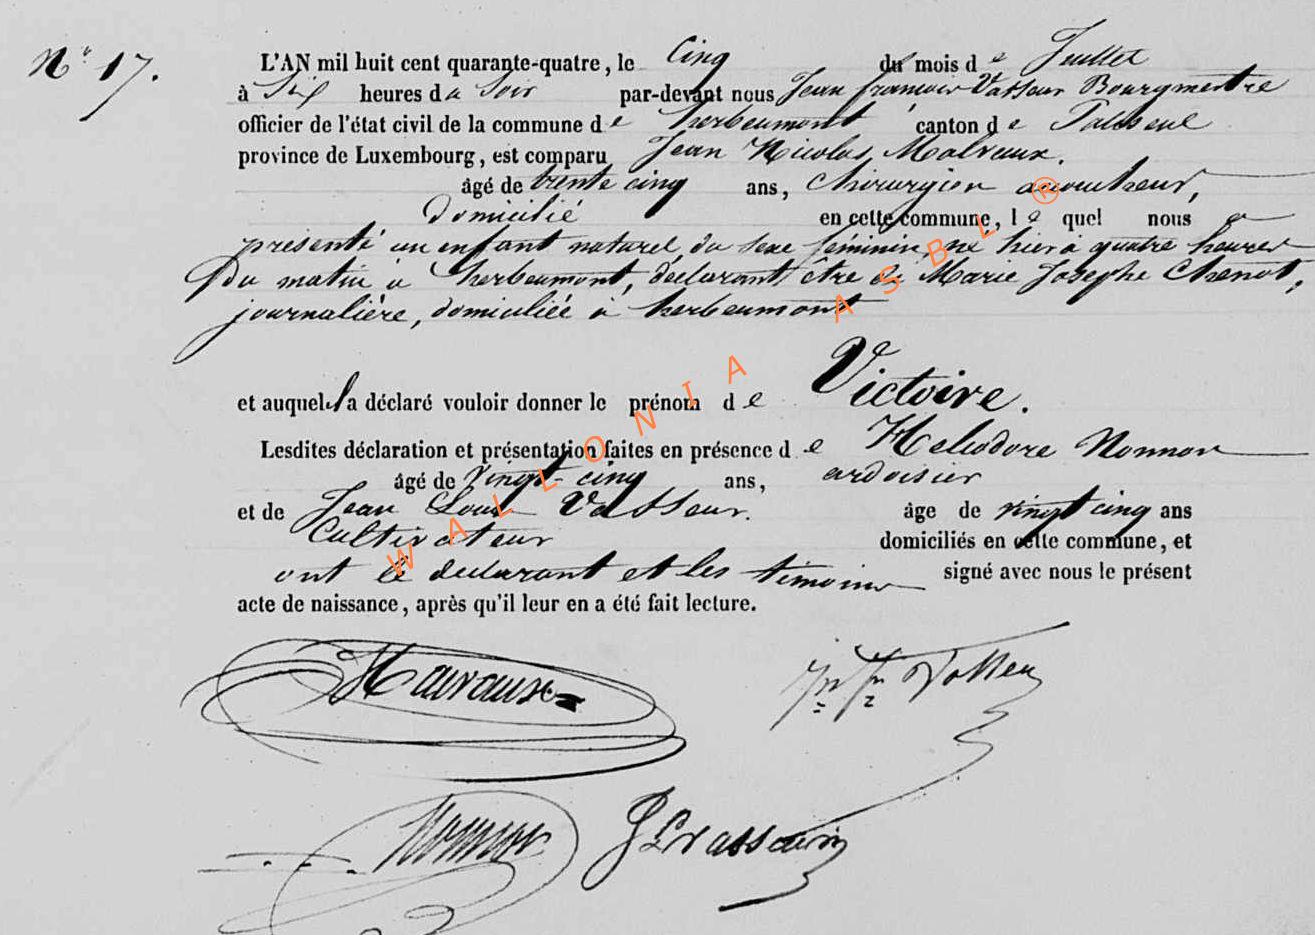 N° 17.
L'AN mil huit cent quarante-quatre, le Cinq du mois de Juillet
à Six heures du Soir par-devant nous Jean françois Vasseur Bourgmestre
officier de l'état civil de la commune de herbeumont canton de Paliseul
province de Luxembourg, est comparu Jean Nicolas Malvaux.
âgé de trente cinq ans, Chirurgien accoucheur,
domicilié en cette commune, lequel nous a
présenté un enfant naturel, du sexe féminin, né hier à quatre heures
Du matin à herbeumont, déclarant être de Marie Josephe Chenot,
journalière, domiciliée à herbeumont
et auquel il a déclaré vouloir donner le prénom de Victoire.
Lesdites déclaration et présentation faites en présence de Heliodore Nonnon
âgé de vingt-cinq ans, ardoisier
et de Jean Louis Vasseur. âge de vingt cinq ans
Cultivateur domiciliés en cette commune, et
ont le déclarant et les témoins signé avec nous le présent
acte de naissance, après qu'il leur en a été fait lecture.
Jn fs Vasseur
Nonnon JLVasseur
WALLONIA ASBL ®